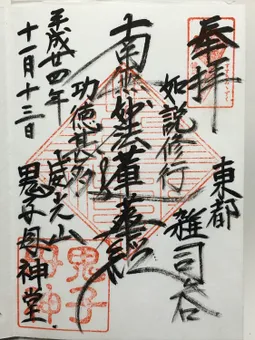 奉拝
東都 雑司谷
如説修行
南無妙法蓮華経
功徳甚多
威光山
鬼子母神堂
平成廿四年
十一月十三日
鬼子
母神